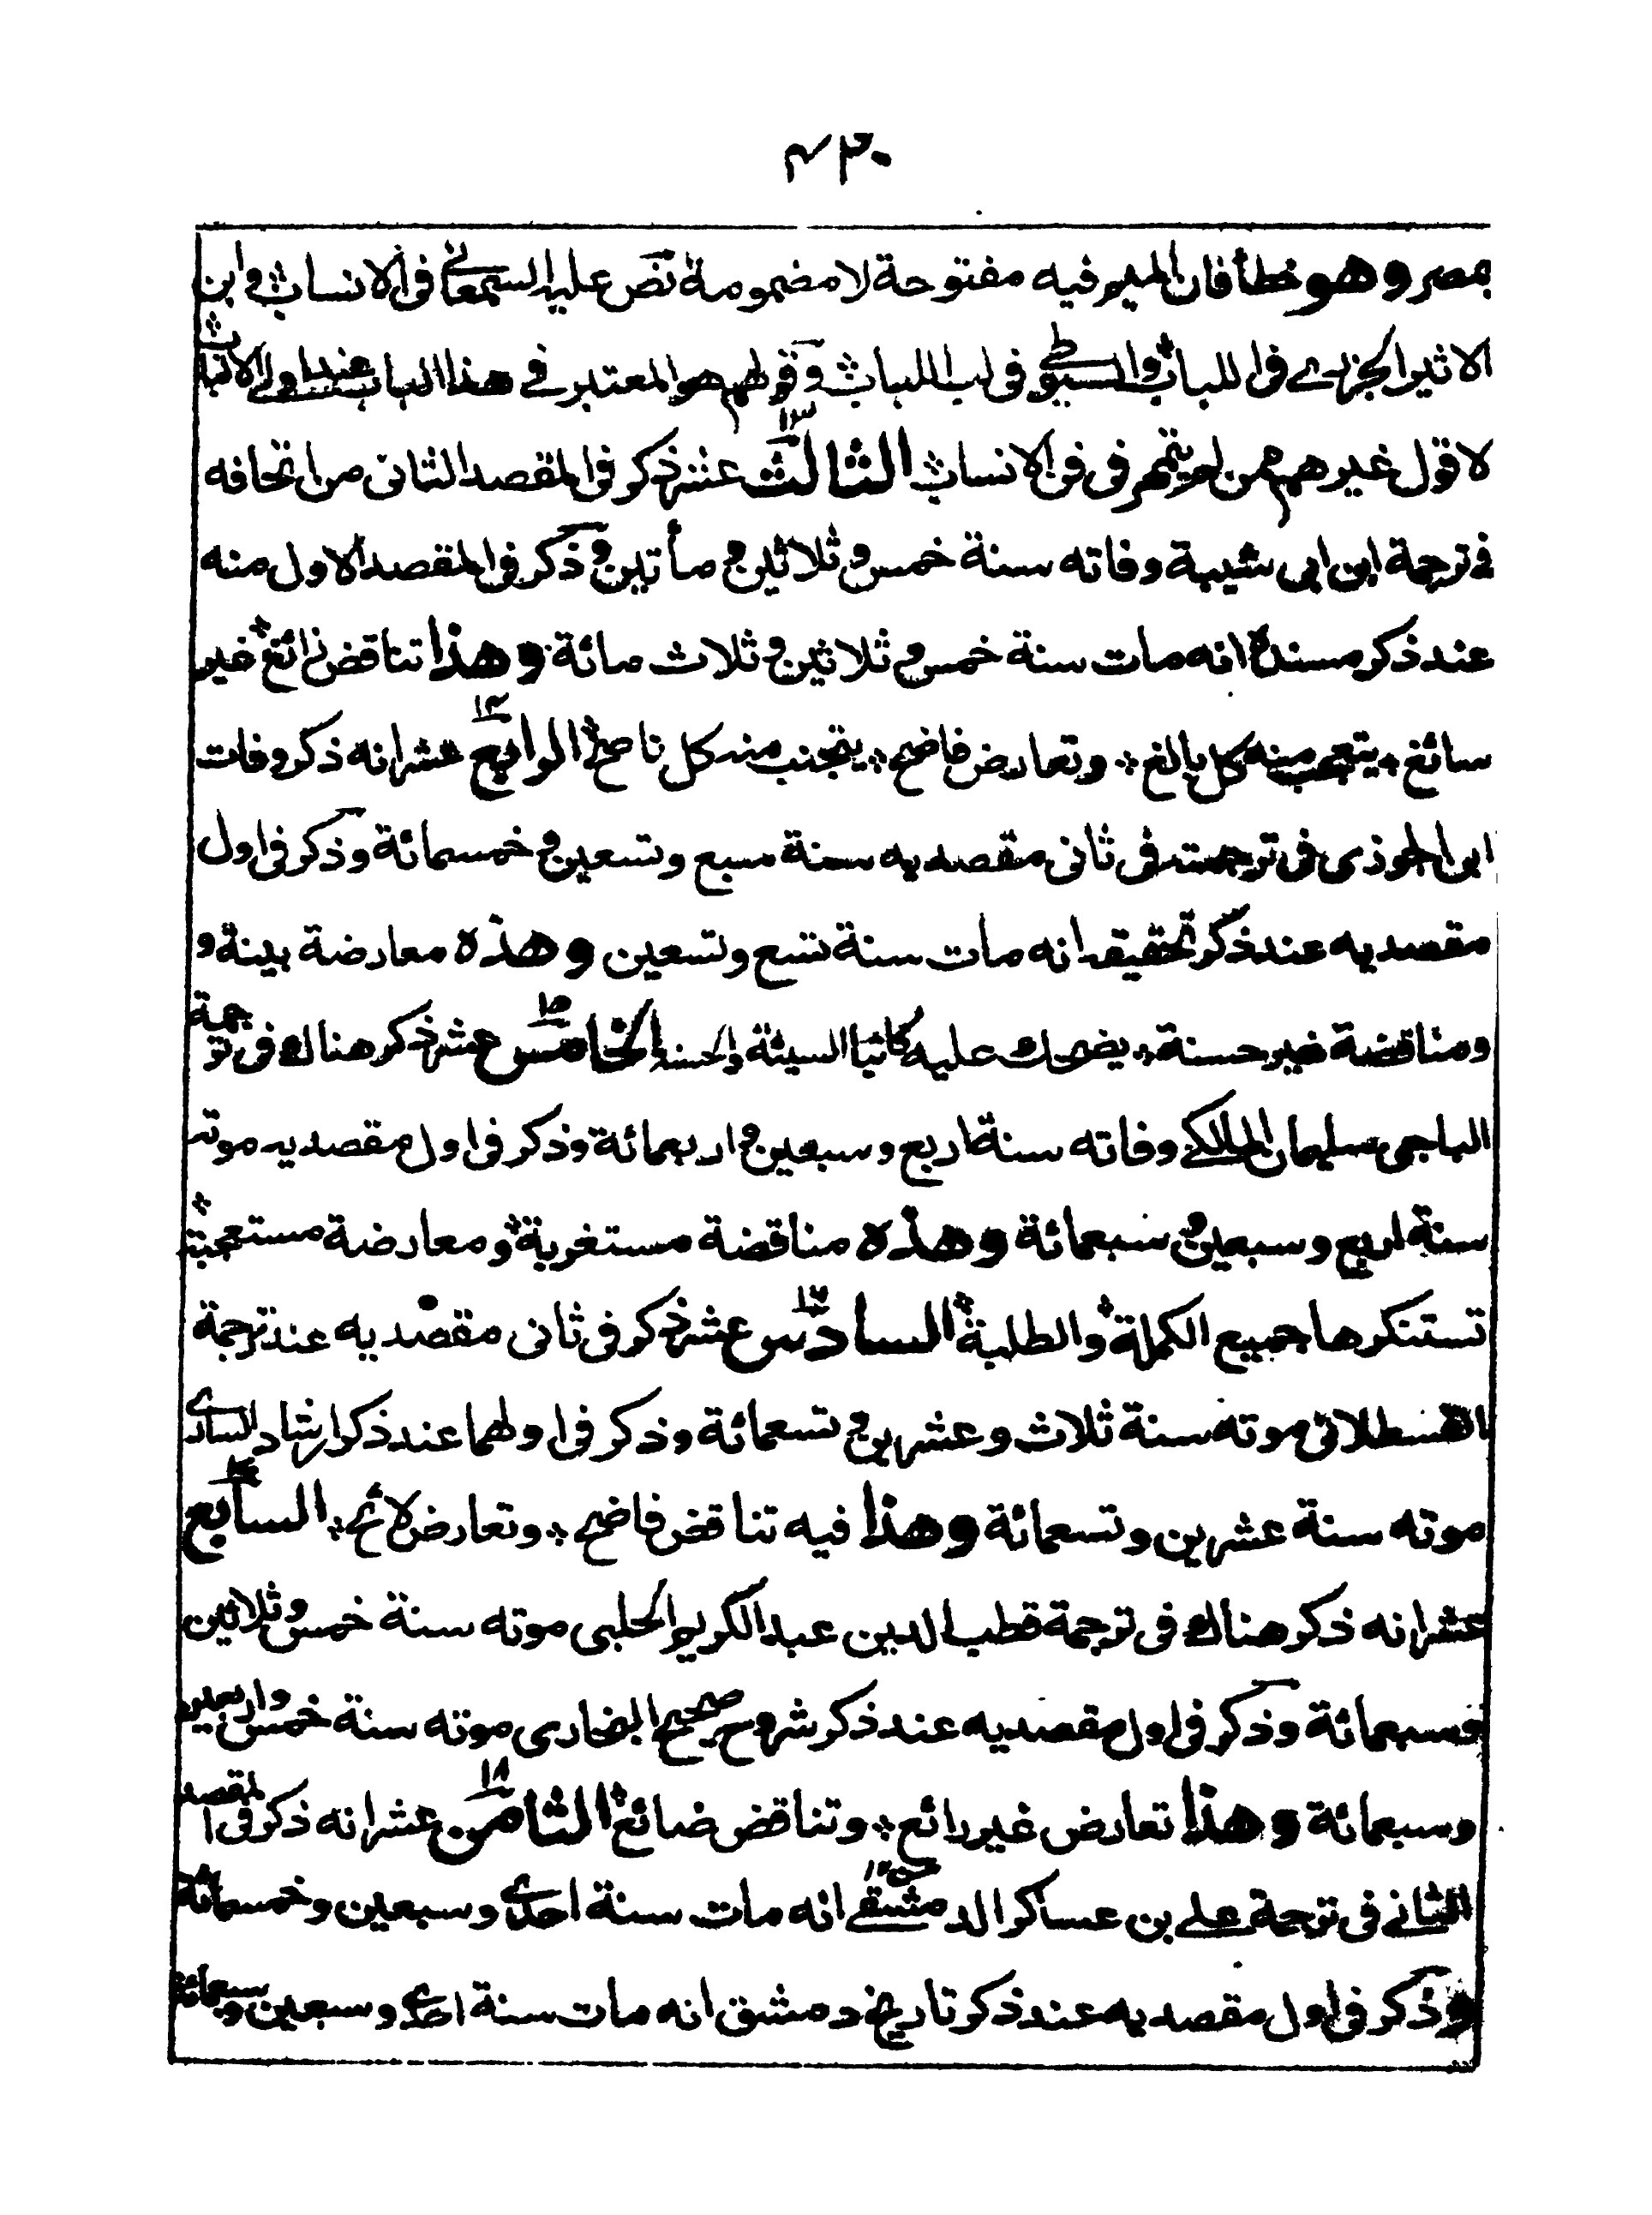 ۴۳۰
بمصر وهو خطأ فان الميم فيه مفتوحة لا مضمومة نص عليه السمعاني في الانساب وابن
الاثير الجزري في اللباب والسيوطي في لب اللباب وقولهم هو المعتبر في هذا الباب عند اولي الالباب
لا قول غيرهم ممن لم يتمهر في فن الانساب الثالث عشر ذكر في المقصد الثاني من اتحافه
في ترجمة ابن ابي شيبة وفاته سنة خمس وثلاثين ومأتين وذكر في المقصد الاول منه
عند ذكر مسنده انه مات سنة خمس وثلاثين وثلاث مائة وهذا تناقض زائغ غير
سائغ يتعجب منه كل بالغ وتعارض فاضح يتجنب منه كل ناصح الرابع عشر انه ذكر وفات
ابن الجوزى في ترجمته في ثاني مقصديه سنة سبع وتسعين وخمسمائة وذكر في اول
مقصديه عند ذكر تحقيقه انه مات سنة تسع وتسعين وهذه معارضة بينة و
ومناقضة غير حسنة يضحك عليه كاتبا السيئة والحسنة الخامس عشر ذكر هناك في ترجمة
الباجي سليمان المالكي وفاته سنة اربع وسبعين واربعمائة وذكر في اول مقصديه موته
سنة اربع وسبعين وسبعمائة وهذه مناقضة مستغربة ومعارضة مستعجبة
تستنكرها جميع الكملة والطلبة السادس عشر ذكر في ثاني مقصديه عند ترجمة
القسطلاني موته سنة ثلاث وعشرين وتسعمائة وذكر في اولهما عند ذكر ارشاد الساري
موته سنة عشرين وتسعمائة وهذا فيه تناقض فاضح وتعارض لائح السابع
عشر انه ذكر هناك في ترجمة قطب الدين عبد الكريم الحلبي موته سنة خمس وثلاثين
وسبعمائة وذكر في اول مقصديه عند ذكر شروح صحيح البخارى موته سنة خمس واربعين
وسبعمائة وهذا تعارض غير رائع وتناقض ضائع الثامن عشر انه ذكر في المقصد
الثاني في ترجمة علي بن عساكر الدمشقي انه مات سنة احدى وسبعين وخمسمائة
وذكر في اول مقصديه عند ذكر تاريخ دمشق انه مات سنة احدى وسبعين وسبعمائة